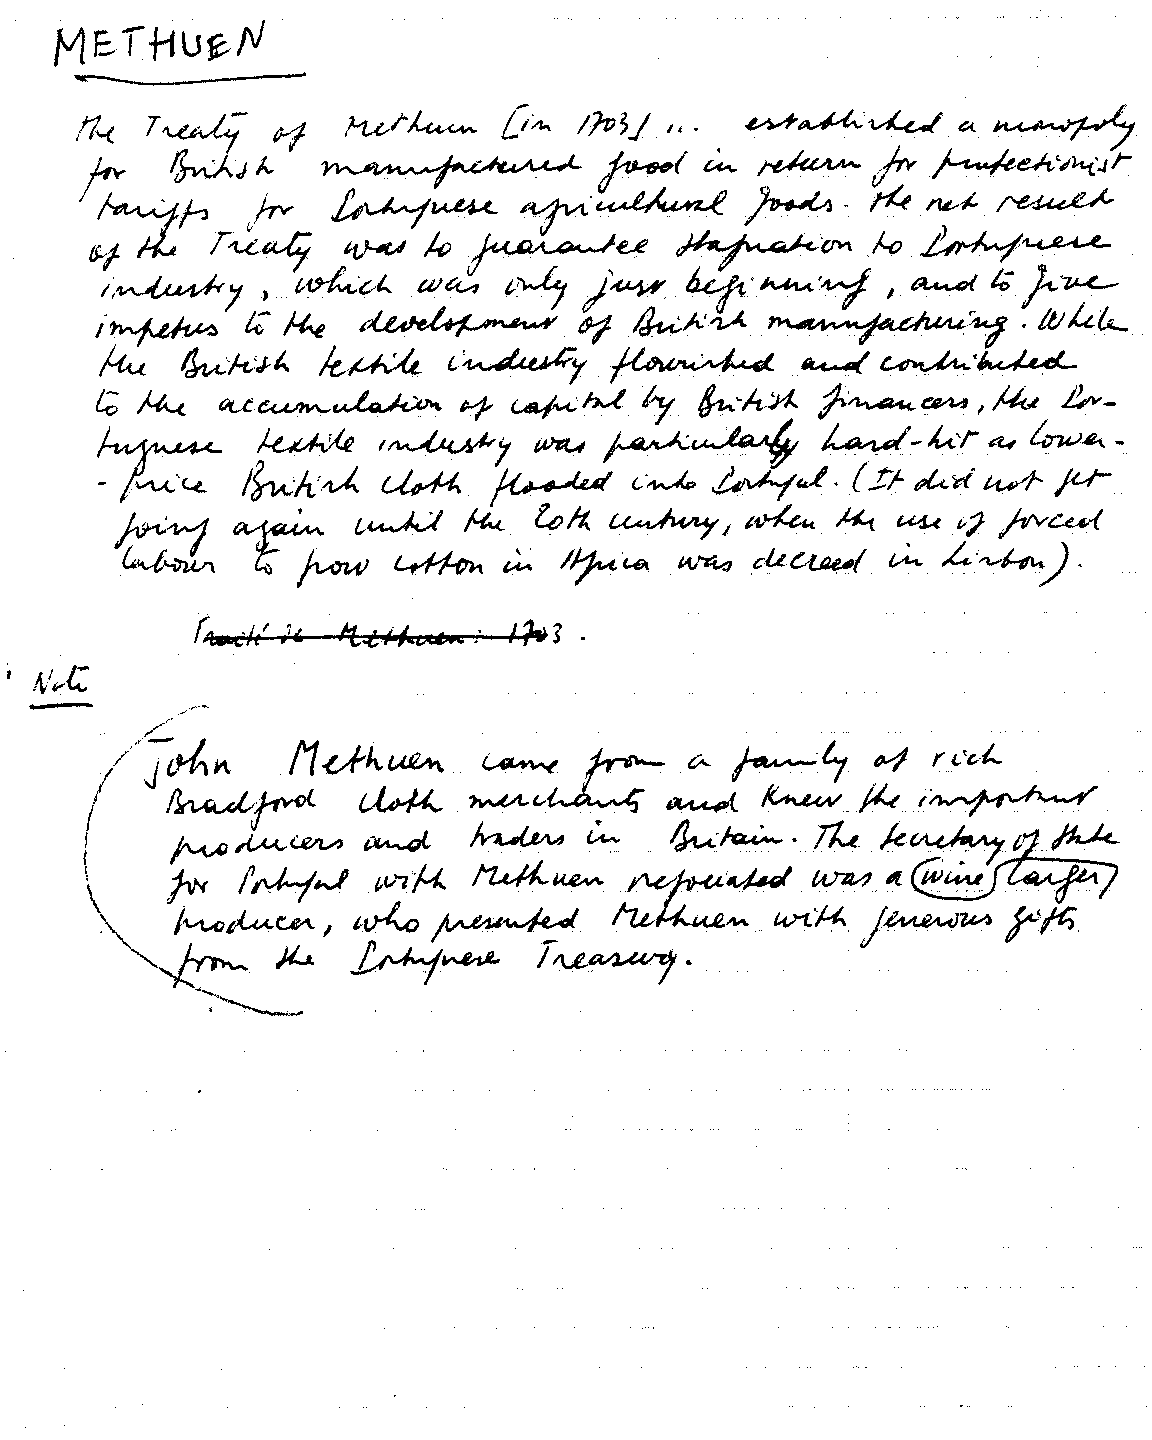 METHUEN
The Treaty of Methuen [in 1703] ... established a monopoly
for British manufactured good in return for protectionist
tariffs for Portuguese agricultural goods. The net result
of the Treaty was to guarantee stagnation to Portuguese
industry, which was only just beginning, and to give
impetus to the development of British manufacturing. While
the British textile industry flourished and contributed
to the accumulation of capital by British financers, the Por-
tuguese textile industry was particularly hard-hit as lower-
-price British cloth flooded into Portugal. (It did not get
going again until the 20th century, when the use of forced
labour to grow cotton in Africa was decreed in Lisbon).
Traité de Methuen: 1703.
Note
John Methuen came from a family of rich
Bradford cloth merchants and knew the important
producers and traders in Britain. The Secretary of State
for Portugal with Methuen negociated was a wine larger
producer, who presented Methuen with generous gifts
from the Portuguese Treasury.